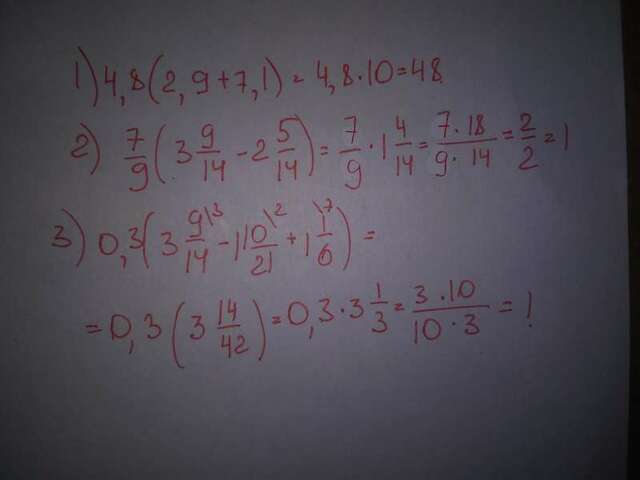 1) 4,8(2,9+7,1)=4,8·10=48
2) 7/9(3 9/14 - 2 5/14) = 7/9 · 1 4/14 = 7·18/9·14 = 2/2 = 1
3) 0,3(3 9\3/14 - 1 10\2/21 + 1 1\7/6) =
= 0,3(3 14/42) = 0,3·3 1/3 = 3·10/10·3 = 1